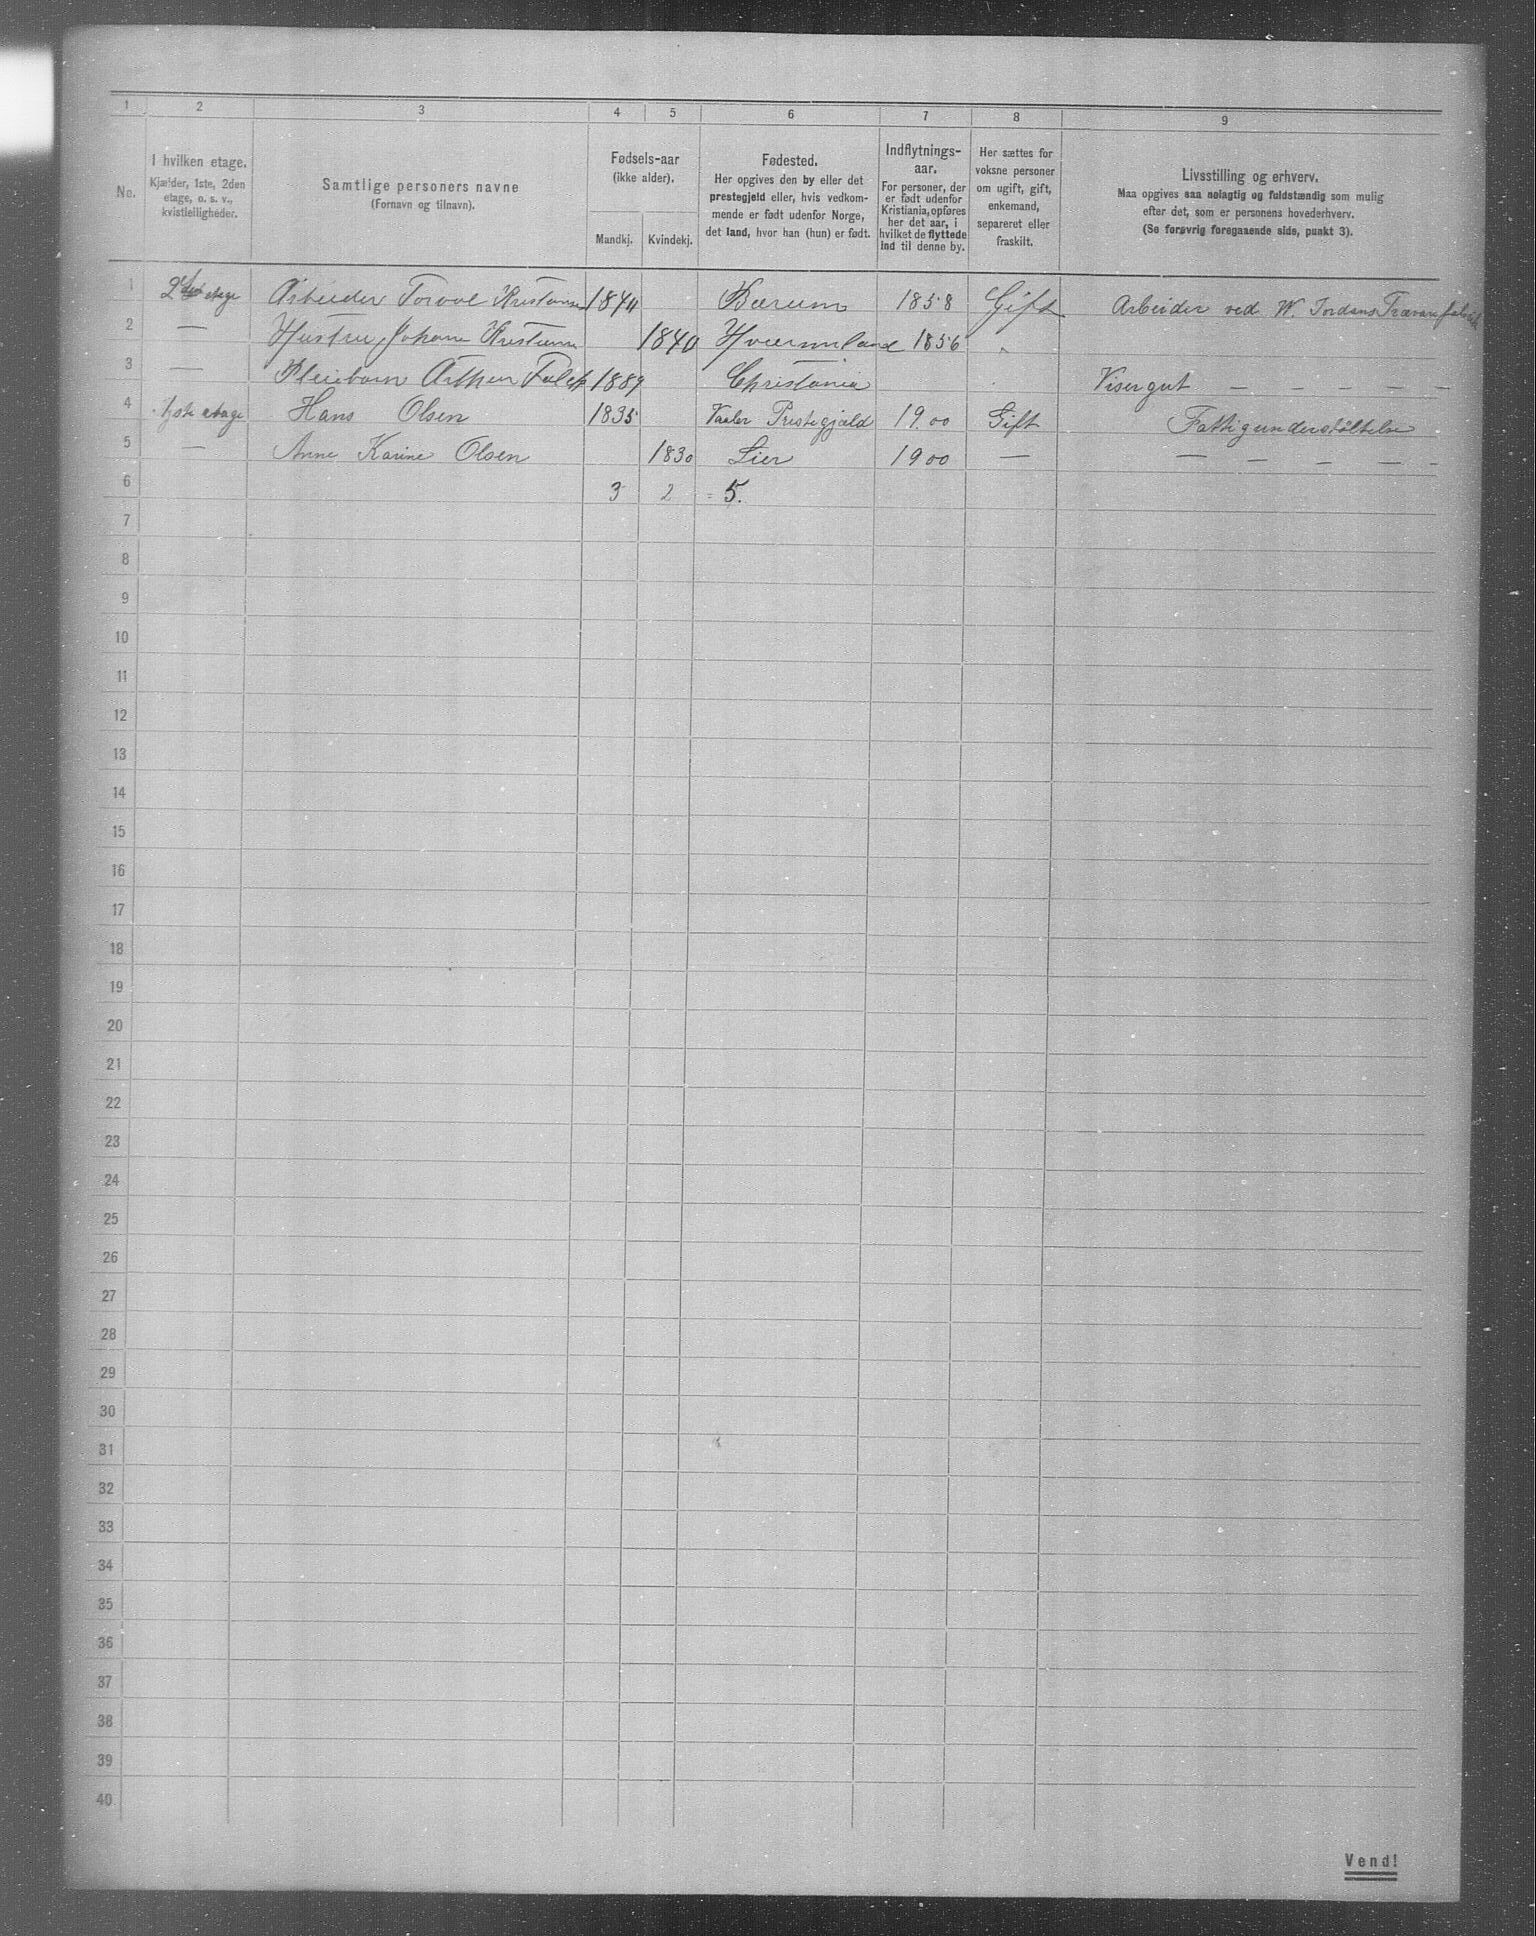 1 2 3 4 5 6 7 8 9
No.
I hvilken etage.
Kjælder, 1ste, 2den
etage, o. s. v.,
kvistleiligheder.
Samtlige personers navne
(Fornavn og tilnavn).
Fødsels-aar
(ikke alder).
Mandkj. Kvindekj.
Fødested.
Her opgives den by eller det
prestegjeld eller, hvis vedkom-
mende er født udenfor Norge,
det land, hvor han (hun) er født.
Indflytnings-
aar.
For personer, der
er født udenfor
Kristiania, opføres
her det aar, i
hvilket de flyttede
ind til denne by.
Her sættes for
voksne personer
om ugift, gift,
enkemand,
separeret eller
fraskilt.
Livsstilling og erhverv.
Maa opgives saa nøiagtig og fuldstændig som mulig
efter det, som er personens hovederhverv.
(Se forøvrig foregaaende side, punkt 3).
1 etage Arbeider 1840 Bærum 1858 Gift Arbeider ved W. Jordans
2 — Hustru Johanne 1840 1856 "
3 — Pleiebarn Arthur Falch 1889 Christania Visergut — — — — —
4 1ste etage Hans Olsen 1835 Vaaler Prestegjæld 1900 Gift Fattigunderstøttelse
5 — Anne Karine Olsen 1830 Lier 1900 — — — — — —
6 3 2 = 5.
7
8
9
10
11
12
13
14
15
16
17
18
19
20
21
22
23
24
25
26
27
28
29
30
31
32
33
34
35
36
37
38
39
40
Vend!